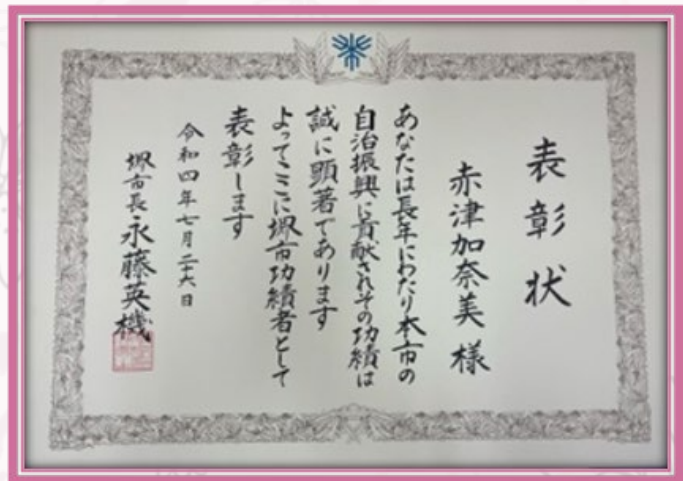 表彰状
赤津加奈美様
あなたは長年にわたり本市の
自治振興に貢献されその功績は
誠に顕著であります
よってここに堺市功績者として
表彰します
令和四年七月二十六日
堺市長永藤英機